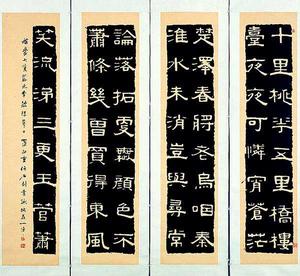 十里桃華五里橋樓
臺夜夜可憐宵蒼茫
楚澤春將老嗚咽秦
淮水未消豈與尋常
論落拓更無顏色不
蕭條幾曾買得東風
笑流涕三更玉管蕭